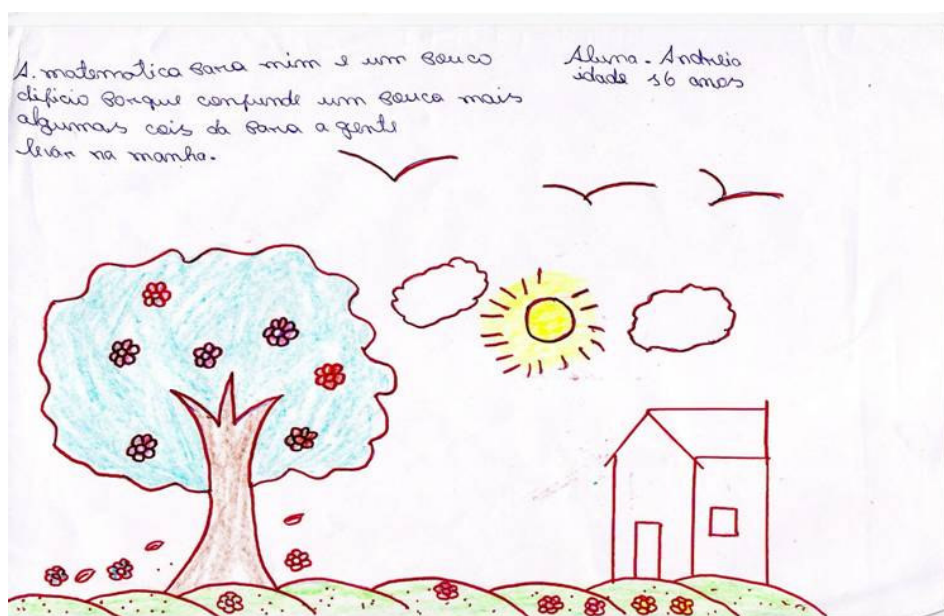 A. matematica para mim e um pouco
dificio porque confunde um pouco mais
algumas cois da para a gente
levar na manha.
Aluna - Andreia
idade 16 anos